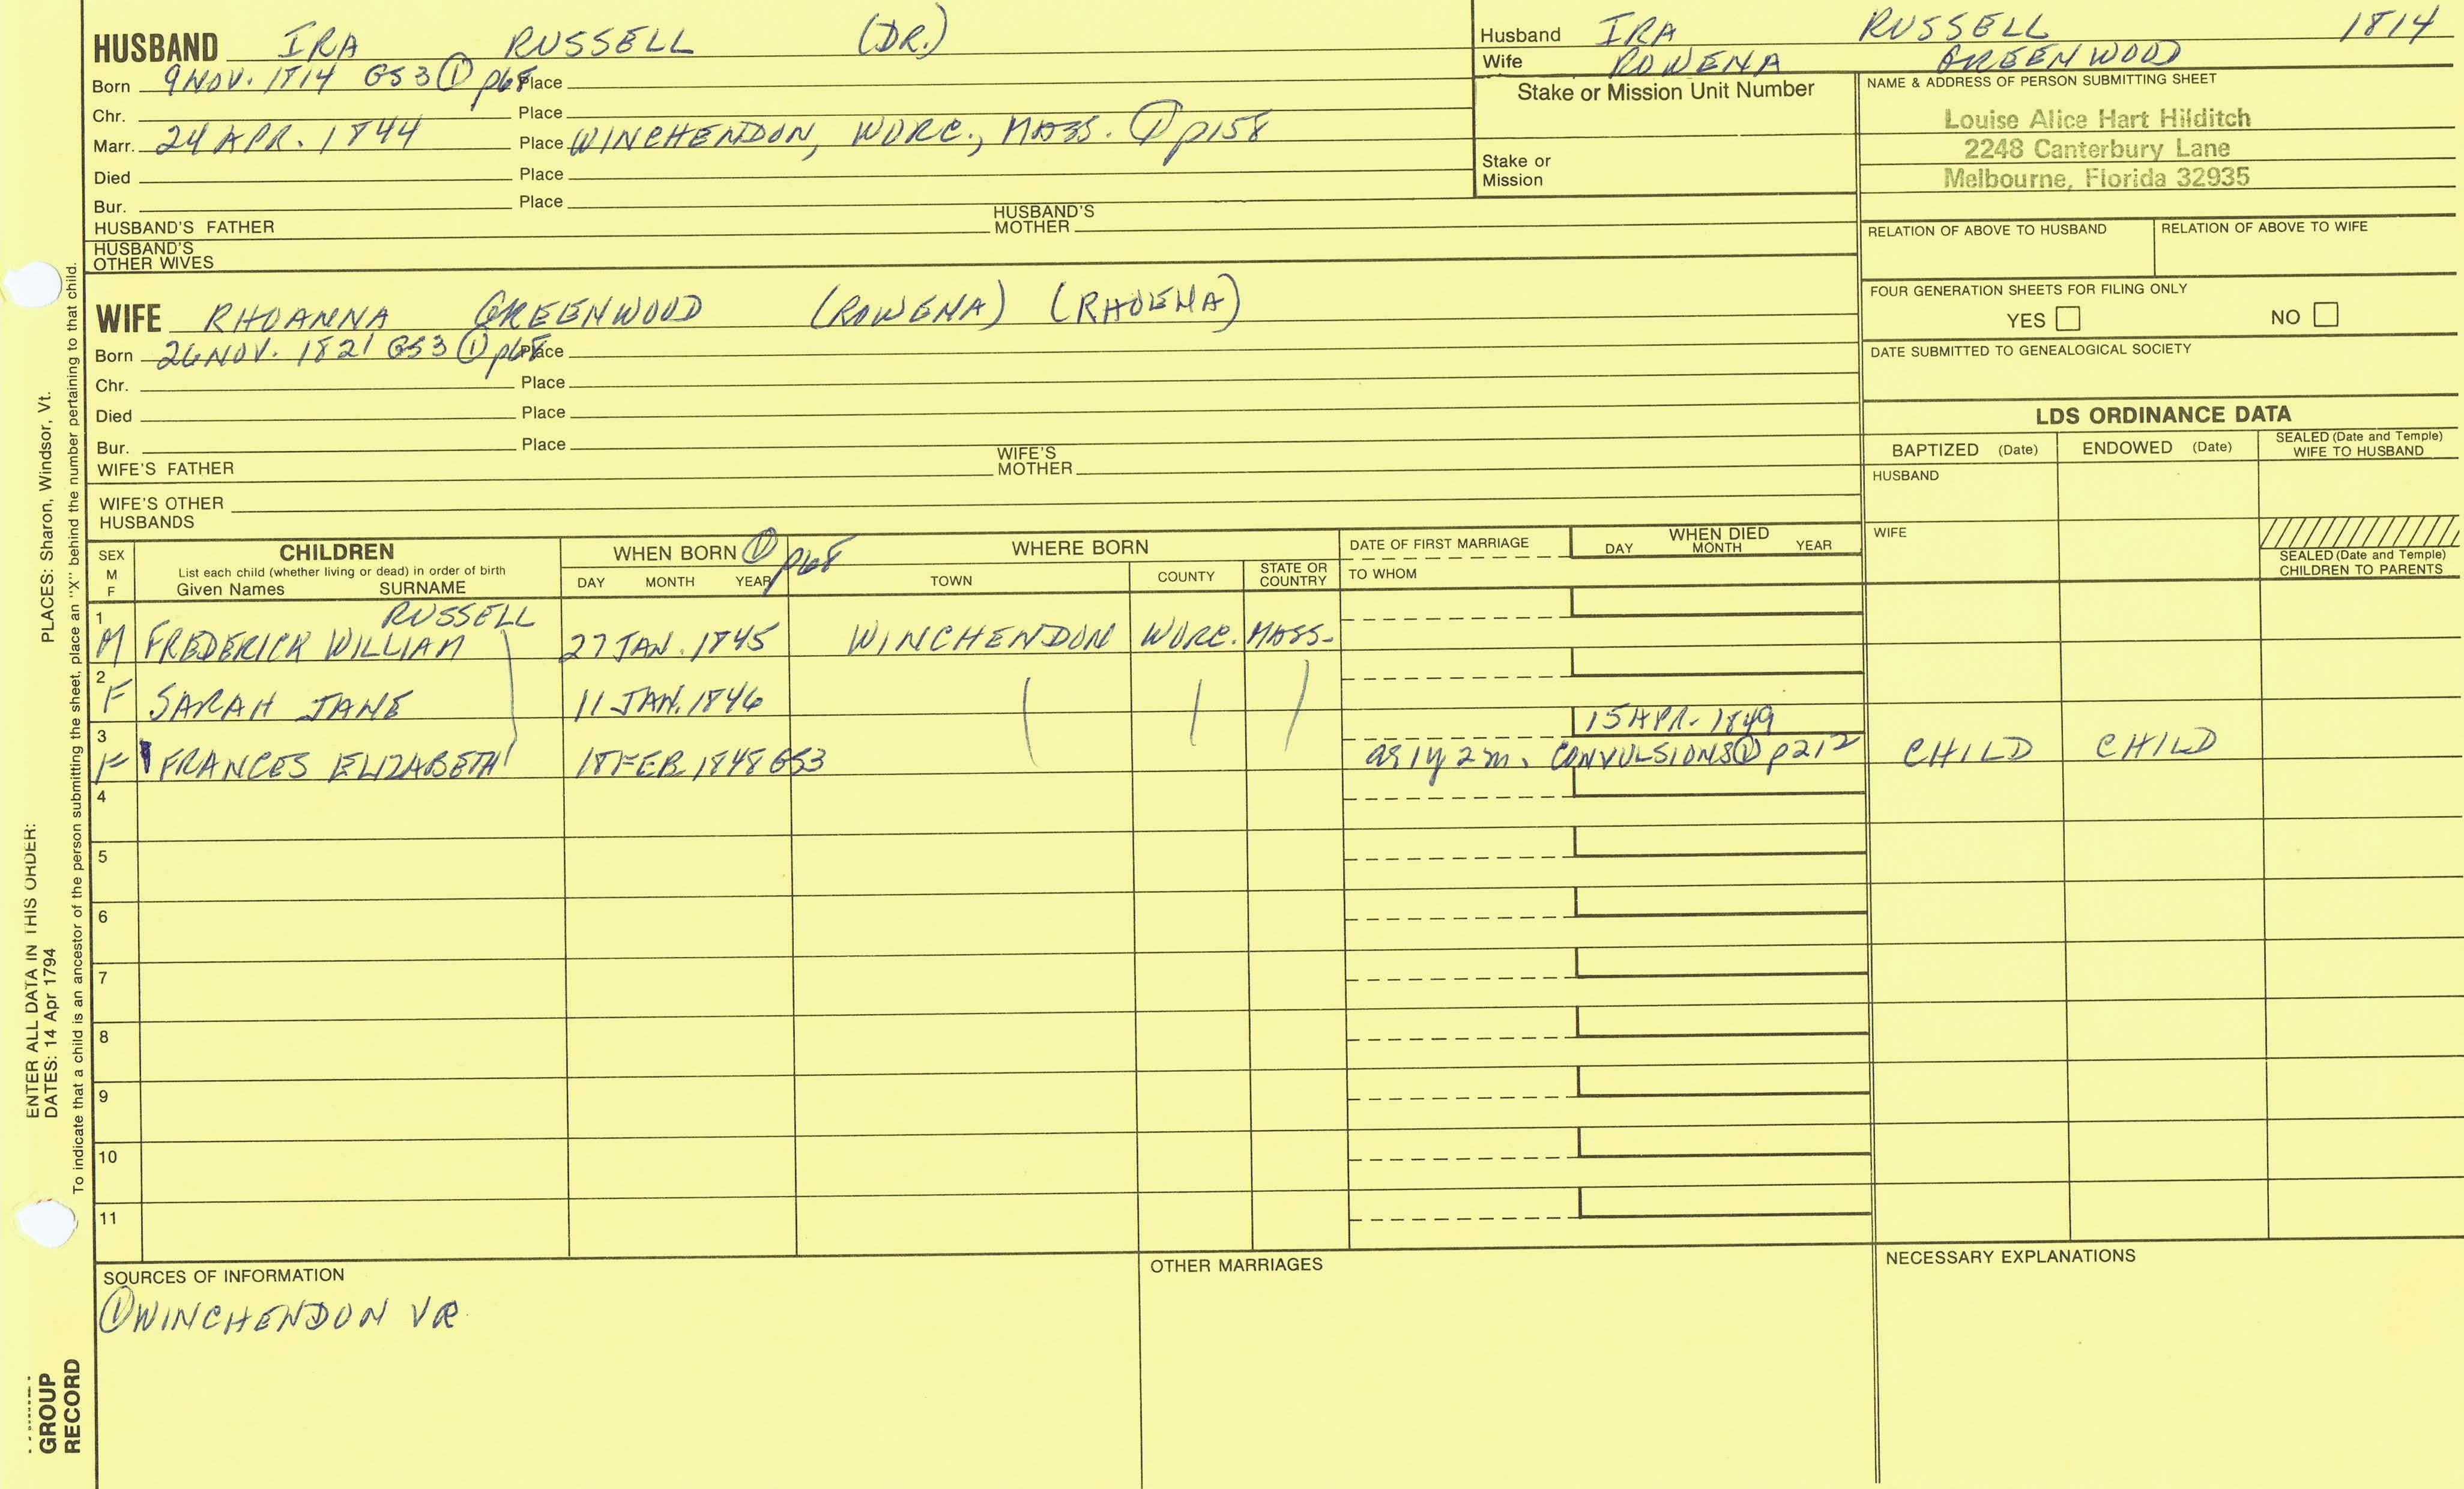 HUSBAND IRA RUSSELL (DR.)
Born 9 NOV. 1814 GS3 ① p68 Place
Chr. Place
Marr. 24 APR. 1844 Place WINCHENDON, WORC., MASS. ① p158
Died Place
Bur. Place
HUSBAND'S FATHER HUSBAND'S MOTHER
HUSBAND'S OTHER WIVES
Husband IRA RUSSELL 1814
Wife ROWENA GREENWOOD
Stake or Mission Unit Number
Stake or Mission
NAME & ADDRESS OF PERSON SUBMITTING SHEET
Louise Alice Hart Hilditch
2248 Canterbury Lane
Melbourne, Florida 32935
RELATION OF ABOVE TO HUSBAND RELATION OF ABOVE TO WIFE
FOUR GENERATION SHEETS FOR FILING ONLY
YES NO
DATE SUBMITTED TO GENEALOGICAL SOCIETY
WIFE RHOANNA GREENWOOD (ROWENA) (RHOENA)
Born 26 NOV. 1821 GS3 ① p68 Place
Chr. Place
Died Place
Bur. Place
WIFE'S FATHER WIFE'S MOTHER
WIFE'S OTHER HUSBANDS
LDS ORDINANCE DATA
BAPTIZED (Date) ENDOWED (Date) SEALED (Date and Temple) WIFE TO HUSBAND
HUSBAND
WIFE
SEALED (Date and Temple) CHILDREN TO PARENTS
SEX M F
CHILDREN
List each child (whether living or dead) in order of birth
Given Names SURNAME
WHEN BORN ① p68
DAY MONTH YEAR
WHERE BORN
TOWN COUNTY STATE OR COUNTRY
DATE OF FIRST MARRIAGE
TO WHOM
WHEN DIED
DAY MONTH YEAR
RUSSELL
1 M FREDERICK WILLIAM 27 JAN. 1845 WINCHENDON WORC. MASS.
2 F SARAH JANE 11 JAN. 1846
15 APR. 1849
3 F FRANCES ELIZABETH 18 FEB 1848 GS3 ag 1y 2m. CONVULSIONS ① p212 CHILD CHILD
4
5
6
7
8
9
10
11
SOURCES OF INFORMATION
① WINCHENDON VR
OTHER MARRIAGES
NECESSARY EXPLANATIONS
PLACES: Sharon, Windsor, Vt.
ENTER ALL DATA IN THIS ORDER:
DATES: 14 Apr 1794
To indicate that a child is an ancestor of the person submitting the sheet, place an "X" behind the number pertaining to that child.
GROUP
RECORD